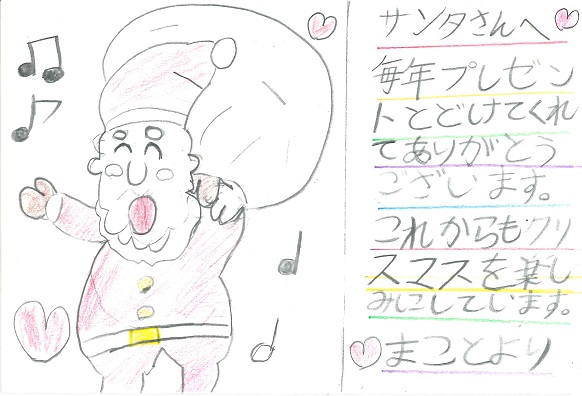 サンタさんへ
毎年プレゼン
トとどけてくれ
てありがとう
ございます。
これからもクリ
スマスを楽し
みにしています。
まことより